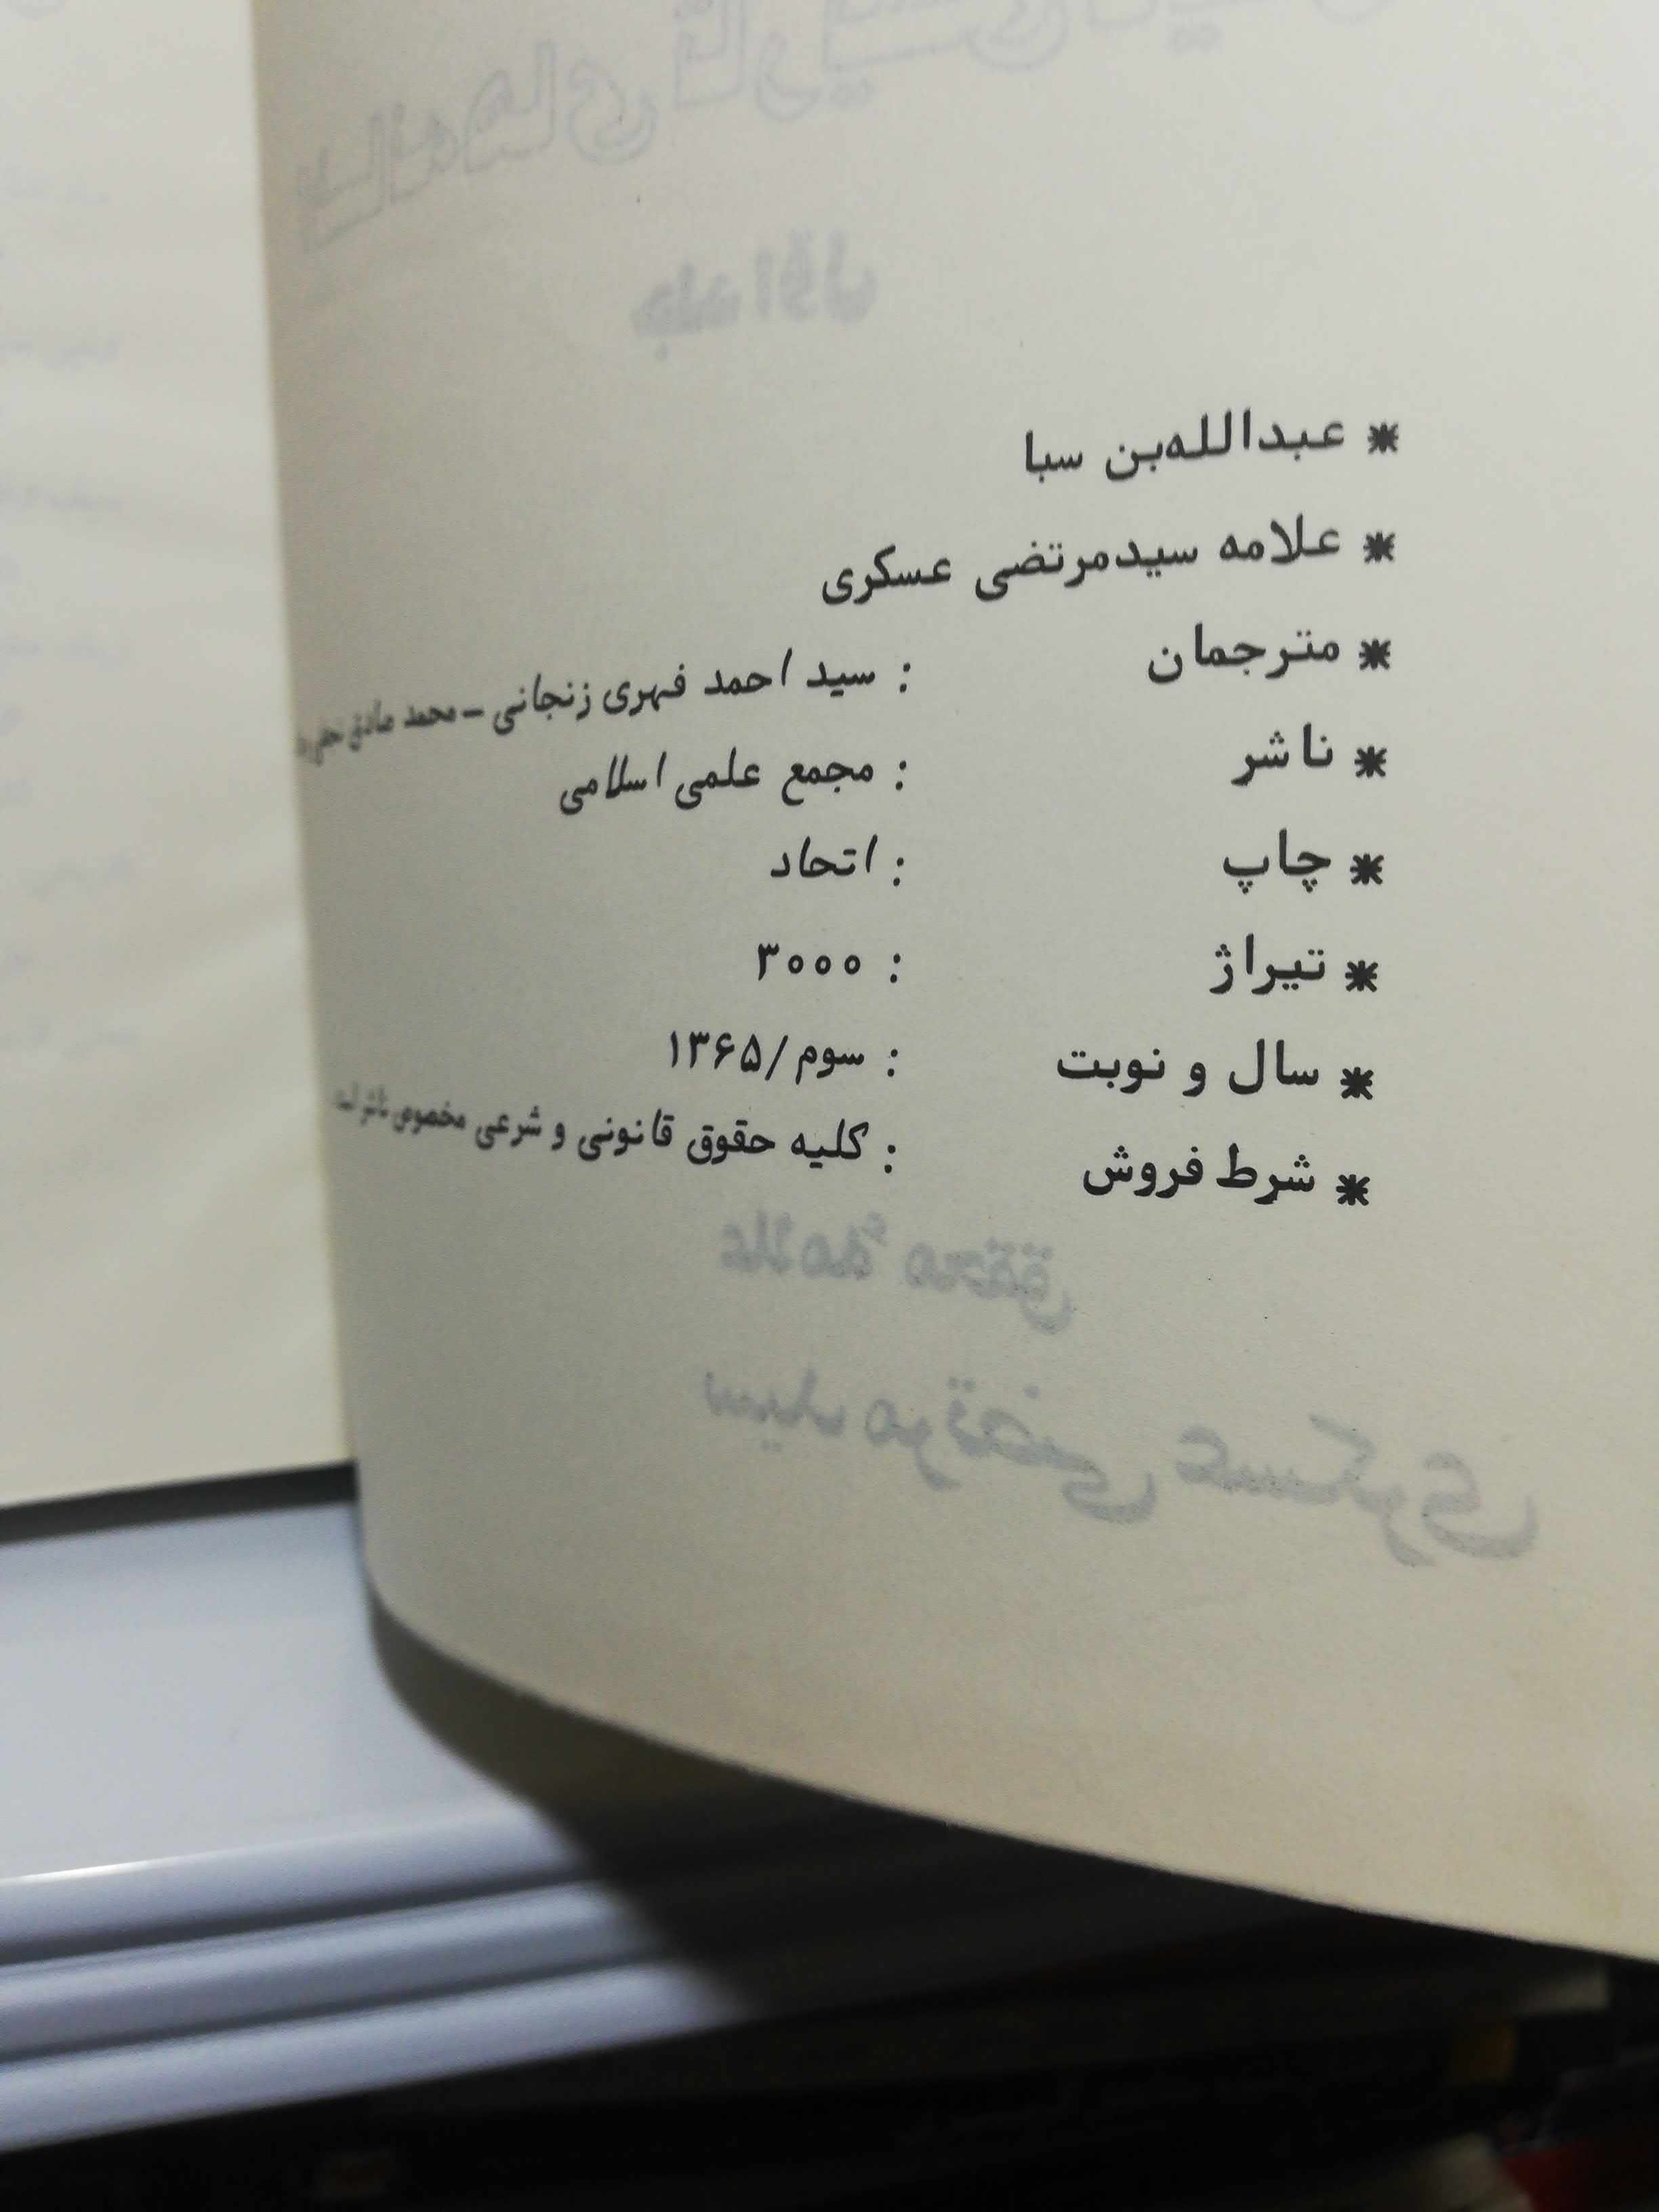 * عبدالله‌بن سبا
* علامه سیدمرتضی عسکری
* مترجمان : سید احمد فهری زنجانی - محمد صادق
* ناشر : مجمع علمی اسلامی
* چاپ : اتحاد
* تیراژ : ۳۰۰۰
* سال و نوبت : سوم/۱۳۶۵
* شرط فروش : کلیه حقوق قانونی و شرعی مخصوص ناشر است